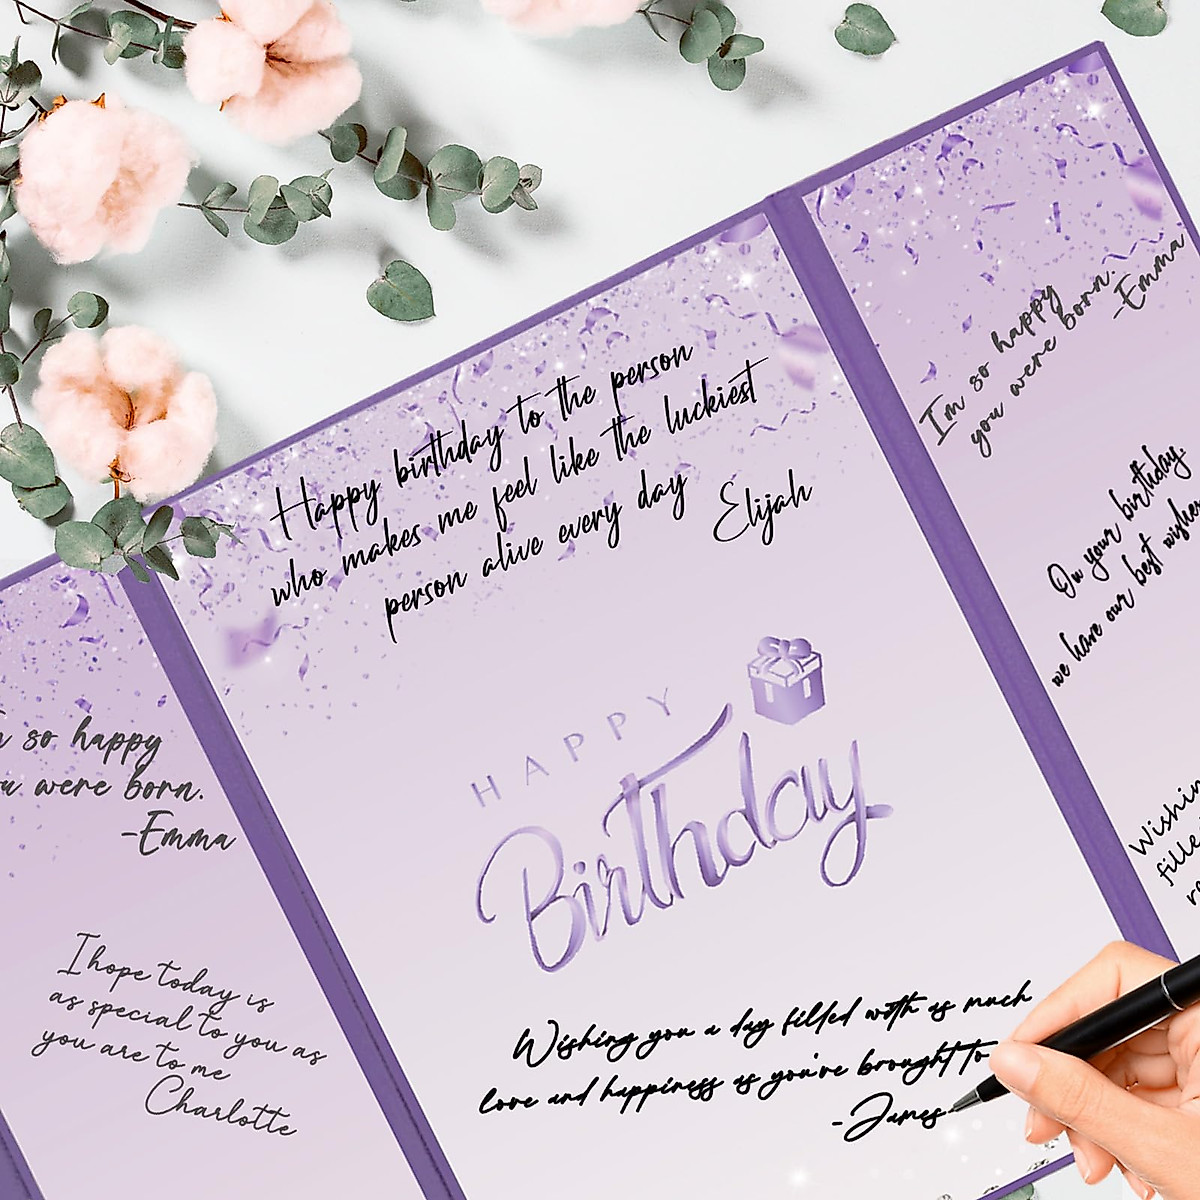 so happy
were born.
-Emma
I hope today is
as special to you as
you are to me
Charlotte
Happy birthday to the person
who makes me feel like the luckiest
person alive every day
Elijah
HAPPY
Birthday
Wishing you a day filled with as much
love and happiness as you've brought to
-James
I'm so happy
you were born.
-Emma
On your birthday
we have our best wishes